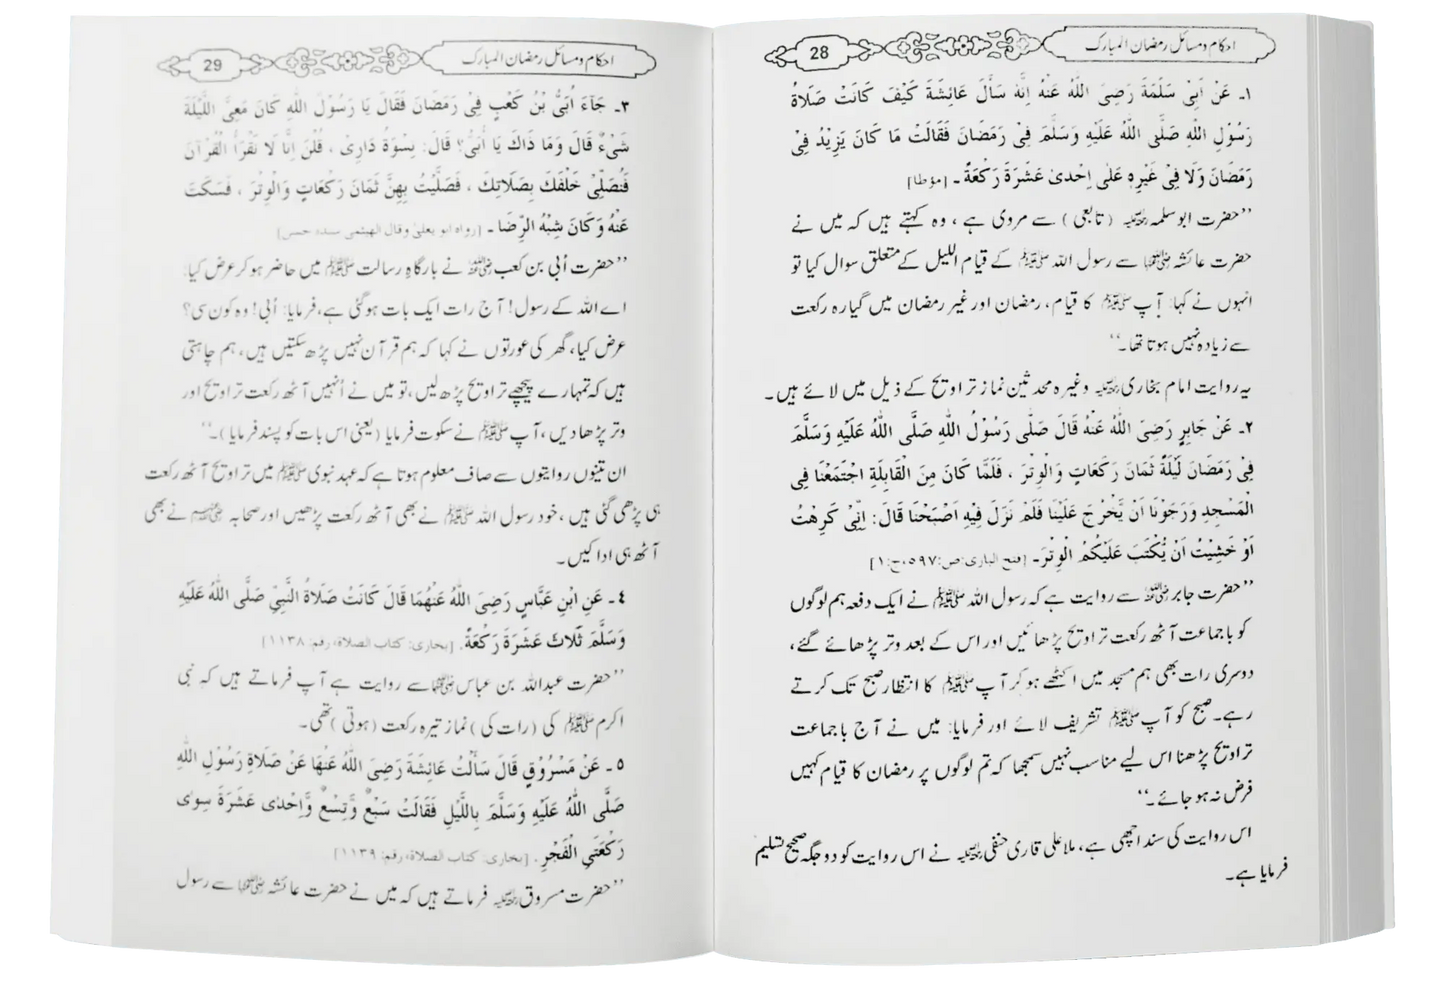 احکام ومسائل رمضان المبارک
28
۱۔ عَنْ اَبِیْ سَلَمَةَ رَضِیَ اللّٰهُ عَنْهُ اِنَّهٗ سَأَلَ عَائِشَةَ كَيْفَ كَانَتْ صَلَاةُ
رَسُوْلِ اللّٰهِ صَلَّی اللّٰهُ عَلَيْهِ وَسَلَّمَ فِیْ رَمَضَانَ فَقَالَتْ مَا كَانَ يَزِيْدُ فِیْ
رَمَضَانَ وَلَا فِیْ غَيْرِهٖ عَلٰی اِحْدیٰ عَشَرَةَ رَكْعَةً ۔ [مؤطا]
’’حضرت ابوسلمہ رحمہ اللہ (تابعی) سے مروی ہے، وہ کہتے ہیں کہ میں نے
حضرت عائشہ رضی اللہ عنہا سے رسول اللہ ﷺ کے قیام اللیل کے متعلق سوال کیا تو
انہوں نے کہا: آپ ﷺ کا قیام، رمضان اور غیر رمضان میں گیارہ رکعت
سے زیادہ نہیں ہوتا تھا۔‘‘
یہ روایت امام بخاری رحمہ اللہ وغیرہ محدثین نماز تراویح کے ذیل میں لائے ہیں۔
۲۔ عَنْ جَابِرٍ رَضِیَ اللّٰهُ عَنْهُ قَالَ صَلّٰی رَسُوْلُ اللّٰهِ صَلَّی اللّٰهُ عَلَيْهِ وَسَلَّمَ
فِیْ رَمَضَانَ لَيْلَةً ثَمَانَ رَكَعَاتٍ وَالْوِتْرَ ، فَلَمَّا كَانَ مِنَ الْقَابِلَةِ اجْتَمَعْنَا فِی
الْمَسْجِدِ وَرَجَوْنَا اَنْ يَّخْرُجَ عَلَيْنَا فَلَمْ نَزَلْ فِيْهِ اَصْبَحْنَا قَالَ: اِنِّیْ كَرِهْتُ
اَوْ خَشِيْتُ اَنْ يُّكْتَبَ عَلَيْكُمُ الْوِتْرَ۔ [فتح الباری:ص:۵۹۷،ج:۱]
’’حضرت جابر رضی اللہ عنہ سے روایت ہے کہ رسول اللہ ﷺ نے ایک دفعہ ہم لوگوں
کو باجماعت آٹھ رکعت تراویح پڑھائیں اور اس کے بعد وتر پڑھائے گئے،
دوسری رات بھی ہم مسجد میں اکٹھے ہو کر آپ ﷺ کا انتظار صبح تک کرتے
رہے۔ صبح کو آپ ﷺ تشریف لائے اور فرمایا: میں نے آج باجماعت
تراویح پڑھنا اس لیے مناسب نہیں سمجھا کہ تم لوگوں پر رمضان کا قیام کہیں
فرض نہ ہو جائے۔‘‘
اس روایت کی سند اچھی ہے، ملا علی قاری حنفی رحمہ اللہ نے اس روایت کو دو جگہ صحیح تسلیم
فرمایا ہے۔
احکام ومسائل رمضان المبارک
29
۳۔ جَآءَ اُبَیُّ بْنُ كَعْبٍ فِیْ رَمَضَانَ فَقَالَ يَا رَسُوْلَ اللّٰهِ كَانَ مَعِیَ اللَّيْلَةَ
شَیْءٌ قَالَ وَمَا ذَاكَ يَا اُبَیُّ؟ قَالَ: نِسْوَةُ دَارِیْ ، قُلْنَ اِنَّا لَا نَقْرَأُ الْقُرْآنَ
فَنُصَلِّیْ خَلْفَكَ بِصَلَاتِكَ ، فَصَلَّيْتُ بِهِنَّ ثَمَانَ رَكْعَاتٍ وَالْوِتْرَ ، فَسَكَتَ
عَنْهُ وَكَانَ شِبْهَ الرِّضَا ۔ [رواه ابو يعلی وقال الهيثمی سنده حسن]
’’حضرت اُبی بن کعب رضی اللہ عنہ نے بارگاہِ رسالت ﷺ میں حاضر ہو کر عرض کیا:
اے اللہ کے رسول! آج رات ایک بات ہوگئی ہے، فرمایا: اُبی! وہ کون سی؟
عرض کیا، گھر کی عورتوں نے کہا کہ ہم قرآن نہیں پڑھ سکتیں ہیں، ہم چاہتی
ہیں کہ تمہارے پیچھے تراویح پڑھ لیں، تو میں نے اُنہیں آٹھ رکعت تراویح اور
وتر پڑھا دیں، آپ ﷺ نے سکوت فرمایا (یعنی اس بات کو پسند فرمایا)۔‘‘
ان تینوں روایتوں سے صاف معلوم ہوتا ہے کہ عہد نبوی ﷺ میں تراویح آٹھ رکعت
ہی پڑھی گئی ہیں، خود رسول اللہ ﷺ نے بھی آٹھ رکعت پڑھیں اور صحابہ رضی اللہ عنہم نے بھی
آٹھ ہی ادا کیں۔
٤۔ عَنِ ابْنِ عَبَّاسٍ رَضِیَ اللّٰهُ عَنْهُمَا قَالَ كَانَتْ صَلَاةُ النَّبِیِّ صَلَّی اللّٰهُ عَلَيْهِ
وَسَلَّمَ ثَلَاثَ عَشَرَةَ رَكْعَةً. [بخاری: كتاب الصلاة، رقم: ۱۱۳۸]
’’حضرت عبداللہ بن عباس رضی اللہ عنہما سے روایت ہے آپ فرماتے ہیں کہ نبی
اکرم ﷺ کی (رات کی) نماز تیرہ رکعت (ہوتی) تھی۔
٥۔ عَنْ مَسْرُوْقٍ قَالَ سَأَلْتُ عَائِشَةَ رَضِیَ اللّٰهُ عَنْهَا عَنْ صَلَاةِ رَسُوْلِ اللّٰهِ
صَلَّی اللّٰهُ عَلَيْهِ وَسَلَّمَ بِاللَّيْلِ فَقَالَتْ سَبْعٌ وَّتِسْعٌ وَّاِحْدٰی عَشَرَةَ سِوٰی
رَكْعَتَیِ الْفَجْرِ. [بخاری: كتاب الصلاة، رقم: ۱۱۳۹]
’’حضرت مسروق رحمہ اللہ فرماتے ہیں کہ میں نے حضرت عائشہ رضی اللہ عنہا سے رسول